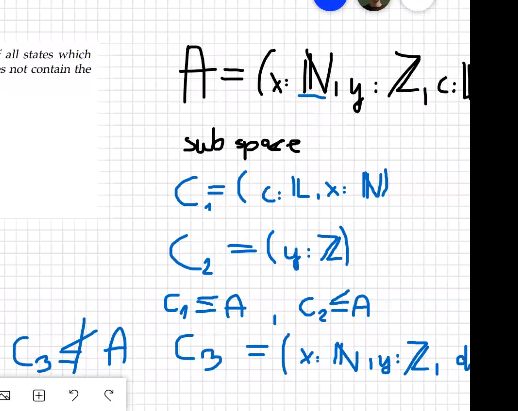 all states which
s not contain the
A = (x: ℕ, y: ℤ, c: 𝕃
sub space
C₁ = ( c: 𝕃, x: ℕ)
C₂ = (y: ℤ)
C₁ ≤ A , C₂ ≤ A
C₃ ≰ A C₃ = (x: ℕ, y: ℤ, d